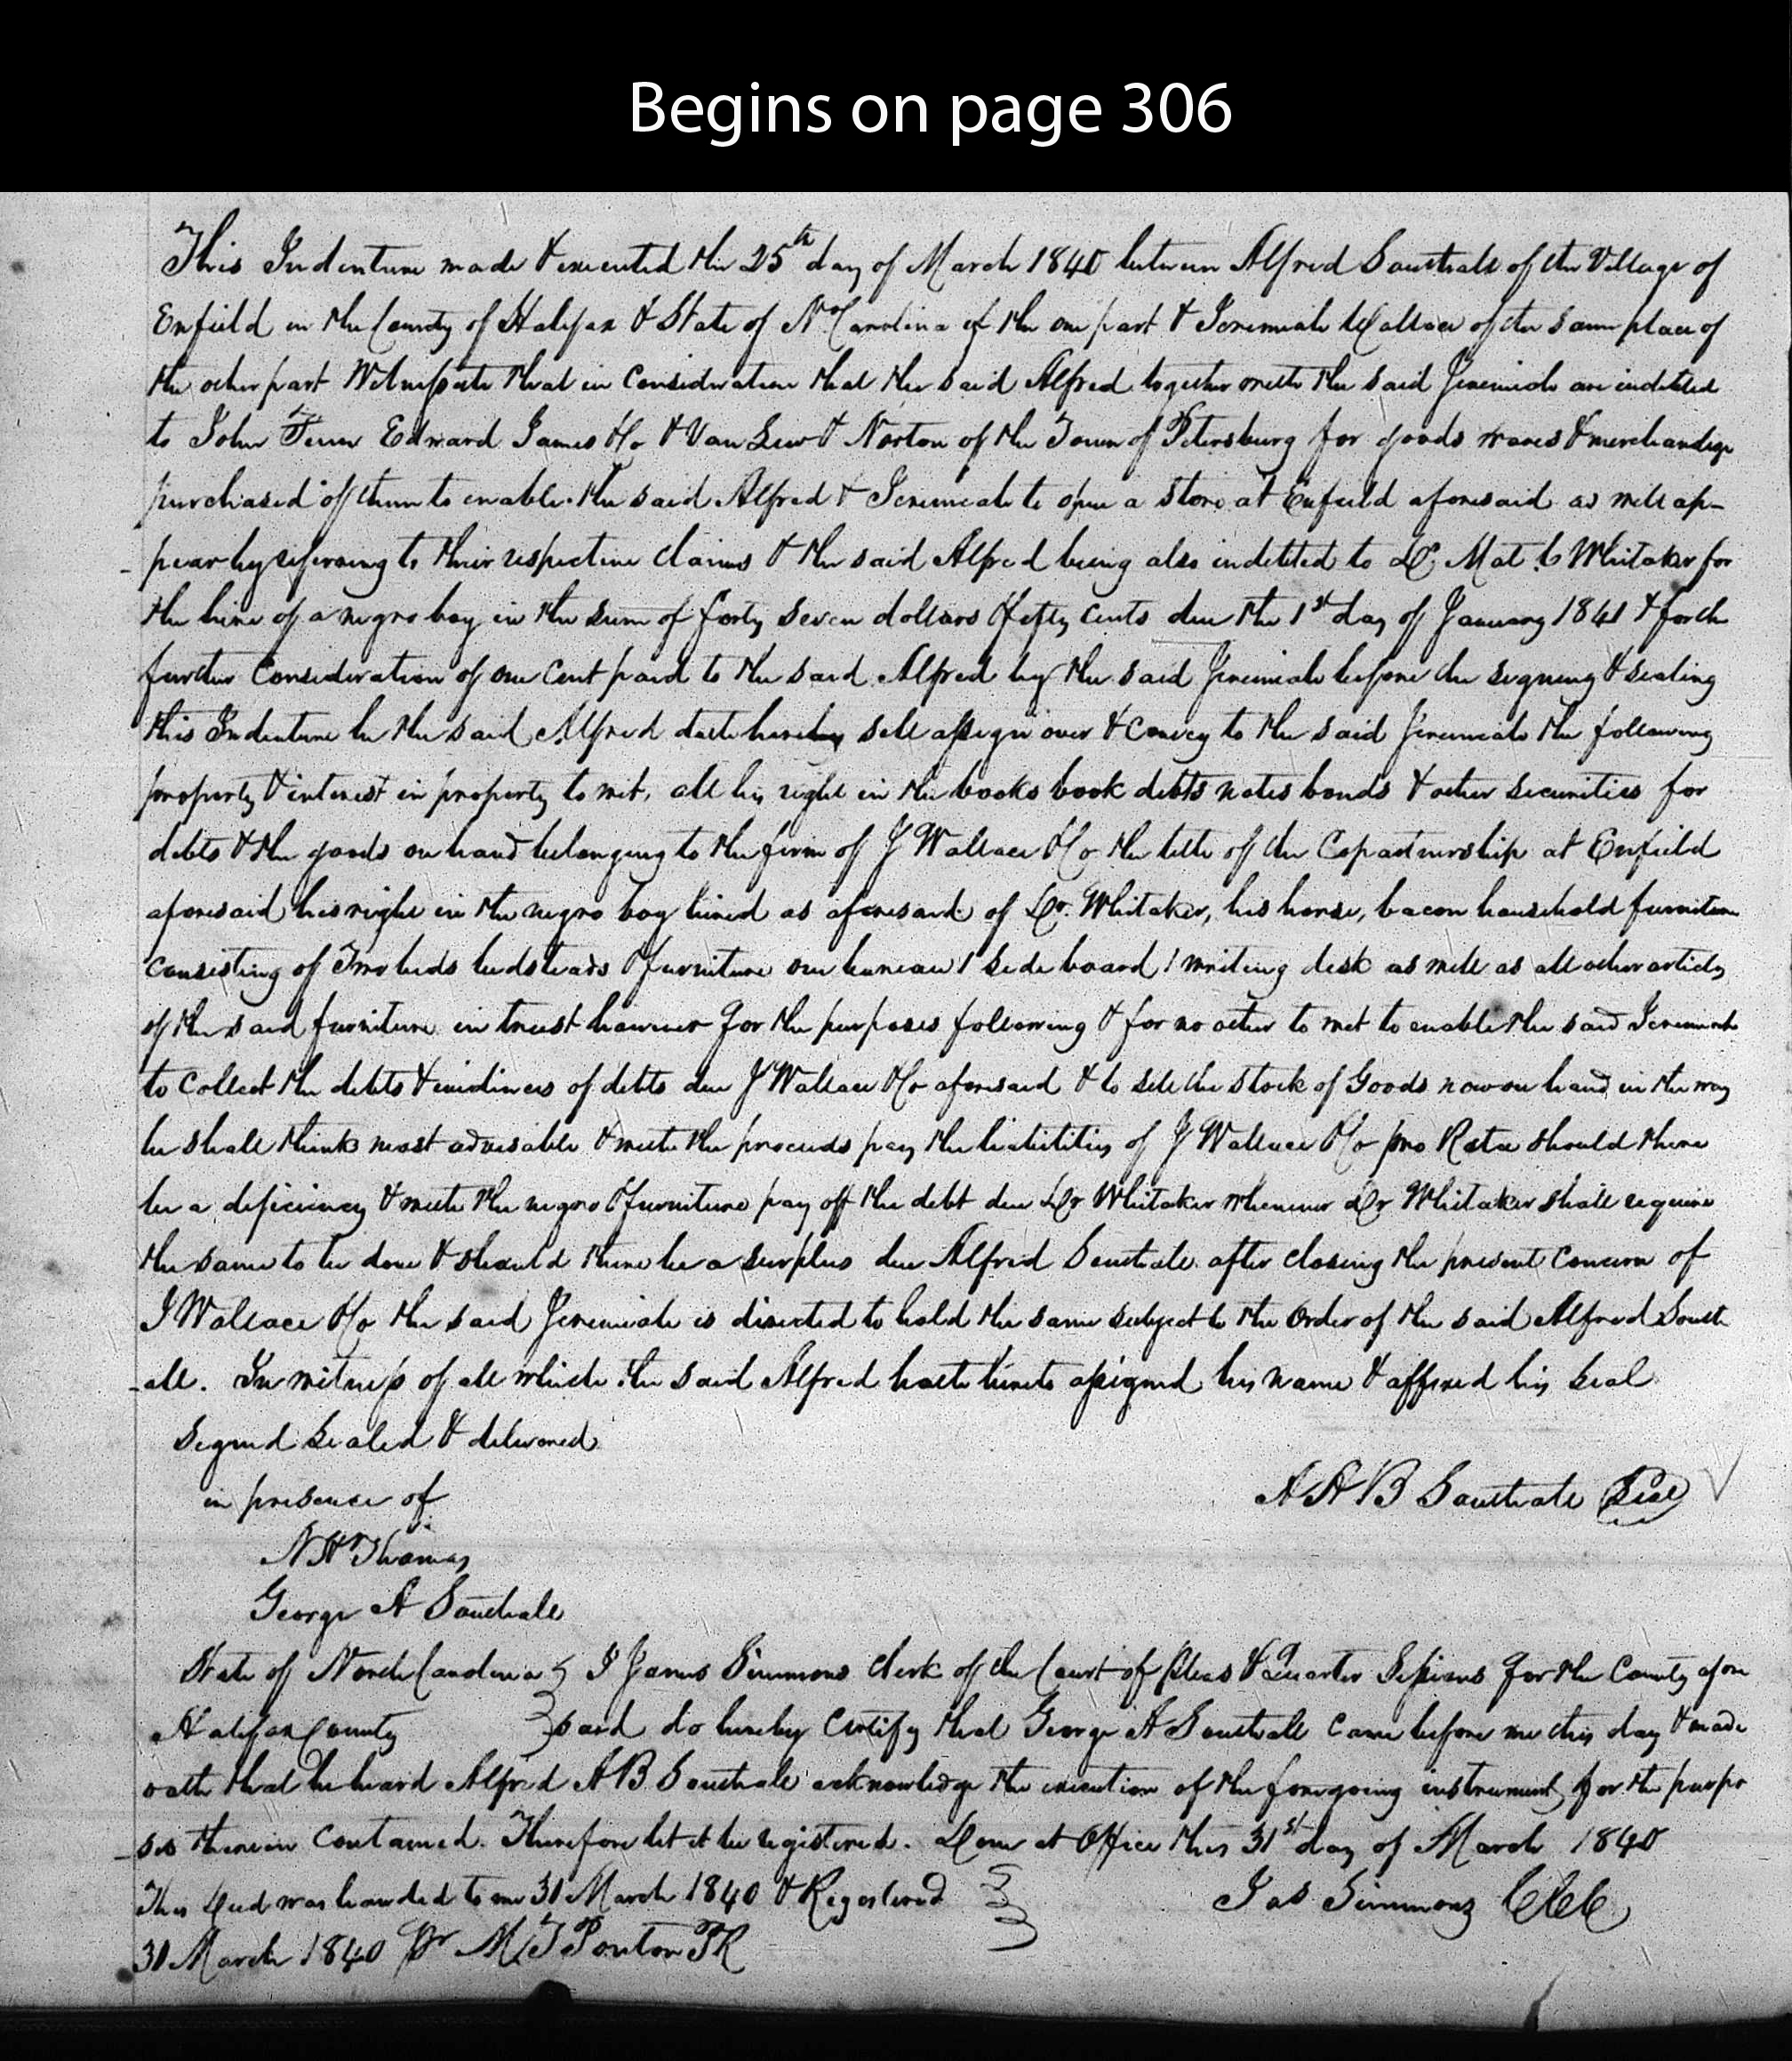 Begins on page 306
This Indenture made & executed the 25th day of March 1840 between Alfred Southall of the Village of
Enfield in the County of Halifax & State of No Carolina of the one part & Jeremiah Wallace of the same place of
the other part Witnesseth that in Consideration that the said Alfred together with the said Jeremiah are indebted
to John Fenn Edward James & Co & Van Lew & Norton of the Town of Petersburg for goods wares & merchandize
purchased of them to enable the said Alfred & Jeremiah to open a store at Enfield aforesaid as will ap-
pear by refering to their respective claims & the said Alfred being also indebted to Dr. Mat C Whitaker for
the hire of a negro boy in the sum of forty seven dollars & fifty cents due the 1st day of January 1841 & for the
further Consideration of one Cent paid to the said Alfred by the said Jeremiah before the signing & sealing
this Indenture he the said Alfred doth hereby sell assign over & Convey to the said Jeremiah the following
property & interest in property to wit, all his right in the books book debts notes bonds & other securities for
debts & the goods on hand belonging to the firm of J Wallace & Co the title of the Copartnership at Enfield
aforesaid his right in the negro boy hired as aforesaid of Dr. Whitaker, his horse, bacon household furniture
consisting of Two beds bedsteads & furniture one bureau 1 side board 1 writing desk as well as all other articles
of the said furniture in trust however for the purposes following & for no other to wit to enable the said Jeremiah
to Collect the debts & evidences of debts due J Wallace & Co aforesaid & to sell the stock of Goods now on hand in the way
he shall think most advisable & with the proceeds pay the liabilities of J Wallace & Co pro Rata should there
be a deficiency & with the negro & furniture pay off the debt due Dr Whitaker whenever Dr Whitaker shall require
the same to be done & should there be a surplus due Alfred Southall after closing the present Concern of
J Wallace & Co the said Jeremiah is directed to hold the same subject to the Order of the said Alfred South
-all. In witness of all which the said Alfred hath hereto assigned his name & affixed his Seal
Signed Sealed & delivered
in presence of
A A B Southall Seal
N H Thomas
George A Southall
State of North Carolina I James Simmons Clerk of the Court of Pleas & Quarter Sessions for the County afore
Halifax County said do hereby Certify that George A Southall came before me this day & made
oath that he heard Alfred A B Southall acknowledge the execution of the foregoing instrument for the purpo
-ses therein Contained. Therefore let it be registered. Done at Office this 31st day of March 1840
Jas Simmons CCC
This Deed was handed to me 31 March 1840 & Registered
31 March 1840 Pr M T Ponton PR